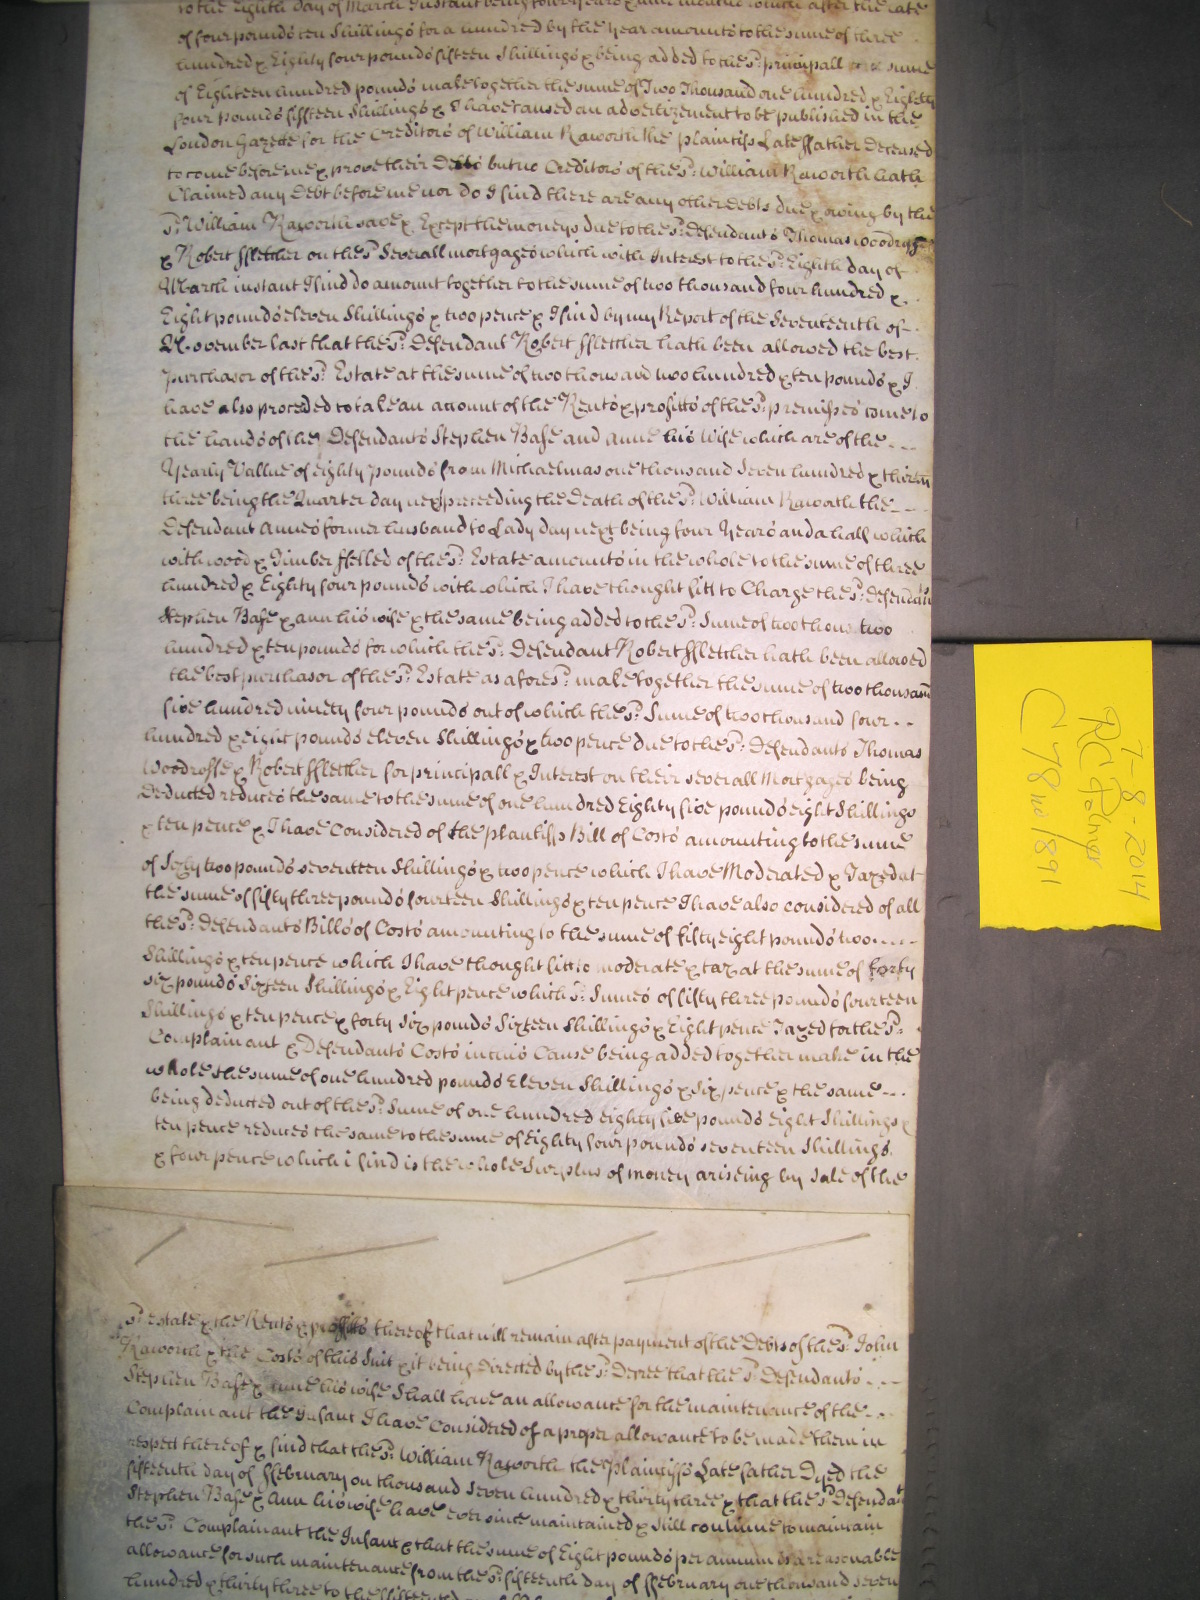 to the Eighth day of March Instant being four Years & nine months which after the rate
of four pounds ten Shillings for a hundred by the Year amounts to the sume of three
hundred & Eighty four pounds fifteen Shillings & being added to the sd: principall sume
of Eighteen hundred pounds make together the sume of Two Thousand one hundred & Eighty
four pounds fifteen Shillings & I have caused an advertizement to be published in the
London Gazette for the Creditors of William Raworth the plaintiffs Late ffather Deceased
to come before me & prove their Debts but no Creditors of the sd: William Raworth hath
Claimed any Debt before me nor do I find there are any other debts due & owing by the
sd: William Raworth save & Except the moneys due to the sd: Defendants Thomas Woodroffe
& Robert ffletcher on the sd: Severall mortgages which with Interest to the sd: Eighth day of
March instant I find do amount together to the sume of two thousand four hundred &
Eight pounds eleven Shillings & two pence & I find by my Report of the Seventeenth of
November last that the sd: Defendant Robert ffletcher hath been allowed the best
purchasor of the sd: Estate at the sume of two thousand two hundred & ten pounds & I
have also proceded to take an account of the Rents & profitts of the sd: premisses come to
the hands of the Defendants Stephen Base and Anne his Wife which are of the
Yearly Vallue of eighty pounds from Michaelmas one thousand Seven hundred & thirty
three being the Quarter day next preceeding the Death of the sd: William Raworth the
Defendant Annes former husband to Lady day next being four Years and a half which
with wood & Timber ffelled of the sd: Estate amounts in the whole to the sume of three
hundred & Eighty four pounds with which I have thought fitt to Charge the sd: Defendants
Stephen Base & ann his wife & the same being added to the sd: Sume of two thous. two
hundred & ten pounds for which the sd: Defendant Robert ffletcher hath been allowed
the best purchasor of the sd: Estate as afores:d make together the sume of two thousand
five hundred ninety four pounds out of which the sd: Sume of two thousand four
hundred & eight pounds eleven Shillings & two pence due to the sd: Defendants Thomas
Woodroffe & Robert ffletcher for principall & Interest on their severall Mortgages being
Deducted reduces the same to the sume of one hundred Eighty five pounds eight Shillings
& ten pence & I have Considered of the plantiffs Bill of Costs amounting to the sume
of Sixty two pounds seventeen Shillings & two pence which I have Moderated & Taxed at
the sume of fifty three pounds fourteen Shillings & ten pence I have also considered of all
the sd: Defendants Bills of Costs amounting to the sume of fifty eight pounds two
Shillings & ten pence which I have thought fitt to moderate & tax at the sume of forty
six pounds Sixteen Shillings & Eight pence which sd: Sumes of fifty three pounds fourteen
Shillings & ten pence & forty Six pounds Sixteen Shillings & Eight pence Taxed for the sd:
Complainant & Defendants Costs in this Cause being added together make in the
whole the sume of one hundred pounds Eleven Shillings & six pence & the same
being deducted out of the sd: Sume of one hundred eighty five pounds eight Shillings &
ten pence reduces the same to the sume of Eighty four pounds seventeen Shillings
& four pence which i find is the whole Surplus of money ariseing by Sale of the
sd: estate & the Rents & profitts thereof that will remain after payment of the Debts of the sd: John
Raworth & the Costs of this Suit & it being directed by the sd: Decree that the sd: Defendants
Stephen Base & anne his wife Shall have an allowance for the maintenance of the
Complainant the Infant I have Considered of a proper allowance to be made them in
respect thereof & find that the sd: William Raworth the Plaintiffs Late father Dyed the
fifteenth day of ffebruary on thousand seven hundred & thirty three & that the sd: Defendants
Stephen Base & Ann his wife have ever since maintained & Still continue to maintain
the sd: Complainant the Infant & that the sume of Eight pounds per annum is a reasonable
allowance for such maintenance from the sd: fifteenth day of ffebruary one thousand seven
hundred & thirty three to the
7-8-2014
RC Palmer
C 78 no 1891